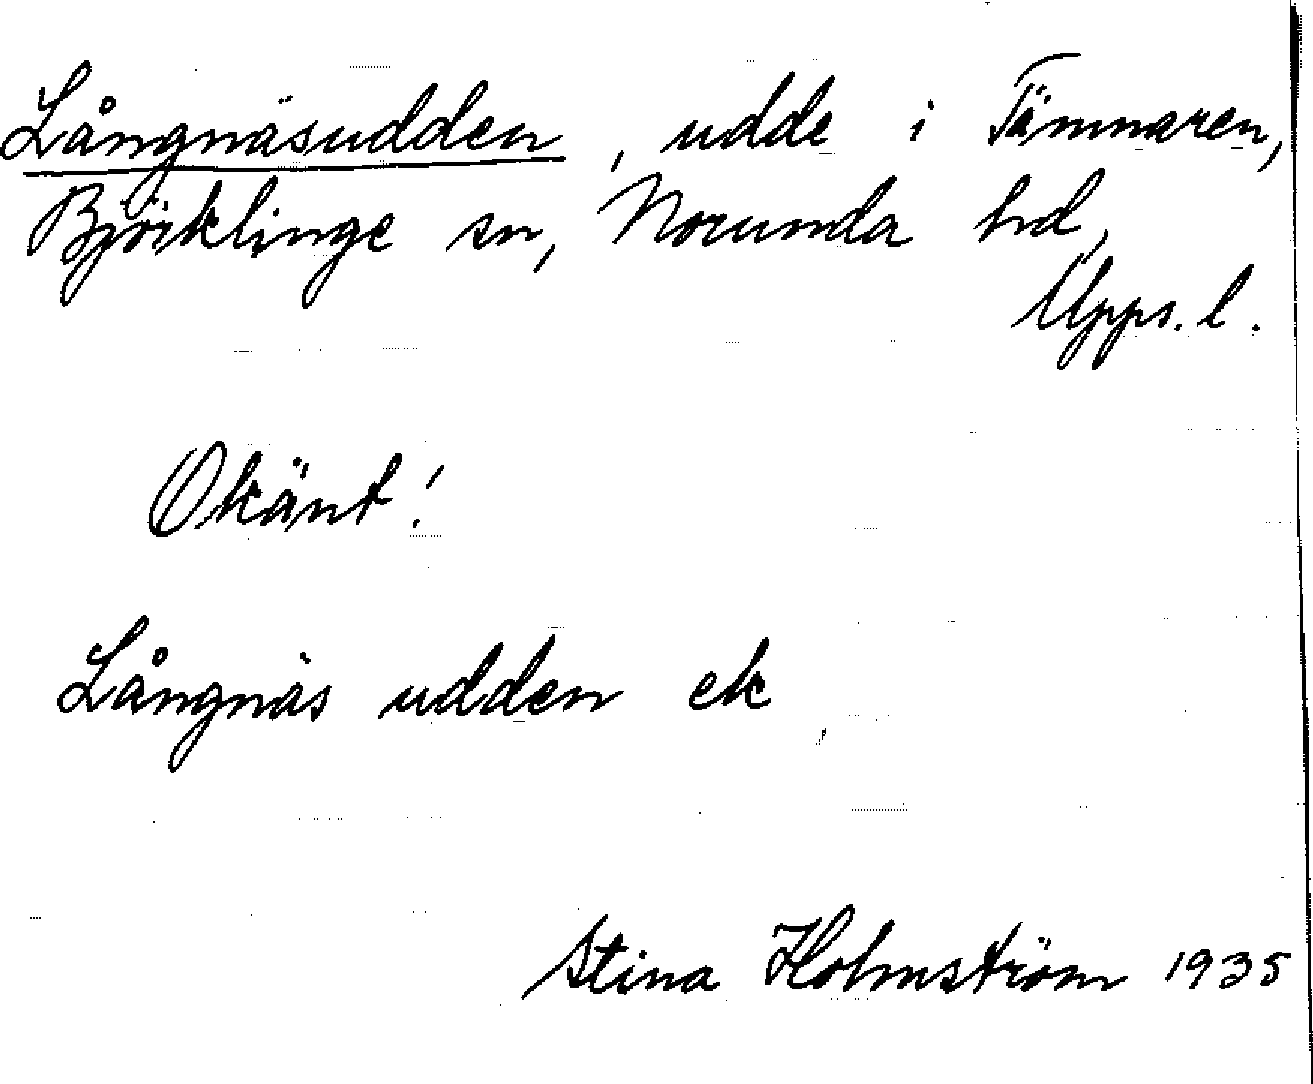 Långnäsudden, udde i Tämnaren,
Björklinge sn, Norunda hd,
Upps. l.
Okänt!
Långnäs udden ek
Stina Holmström 1935